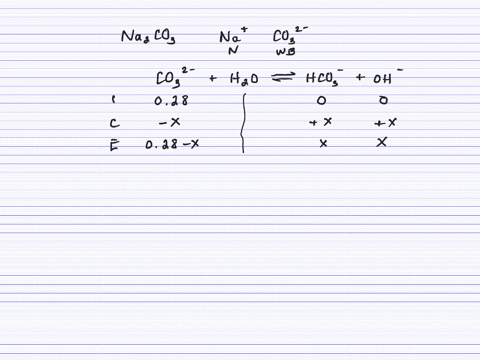 Na₂CO₃ Na⁺ CO₃²⁻
N WB
CO₃²⁻ + H₂O ⇌ HCO₃⁻ + OH⁻
I 0.28 0 0
C -x +x +x
E 0.28-x x x